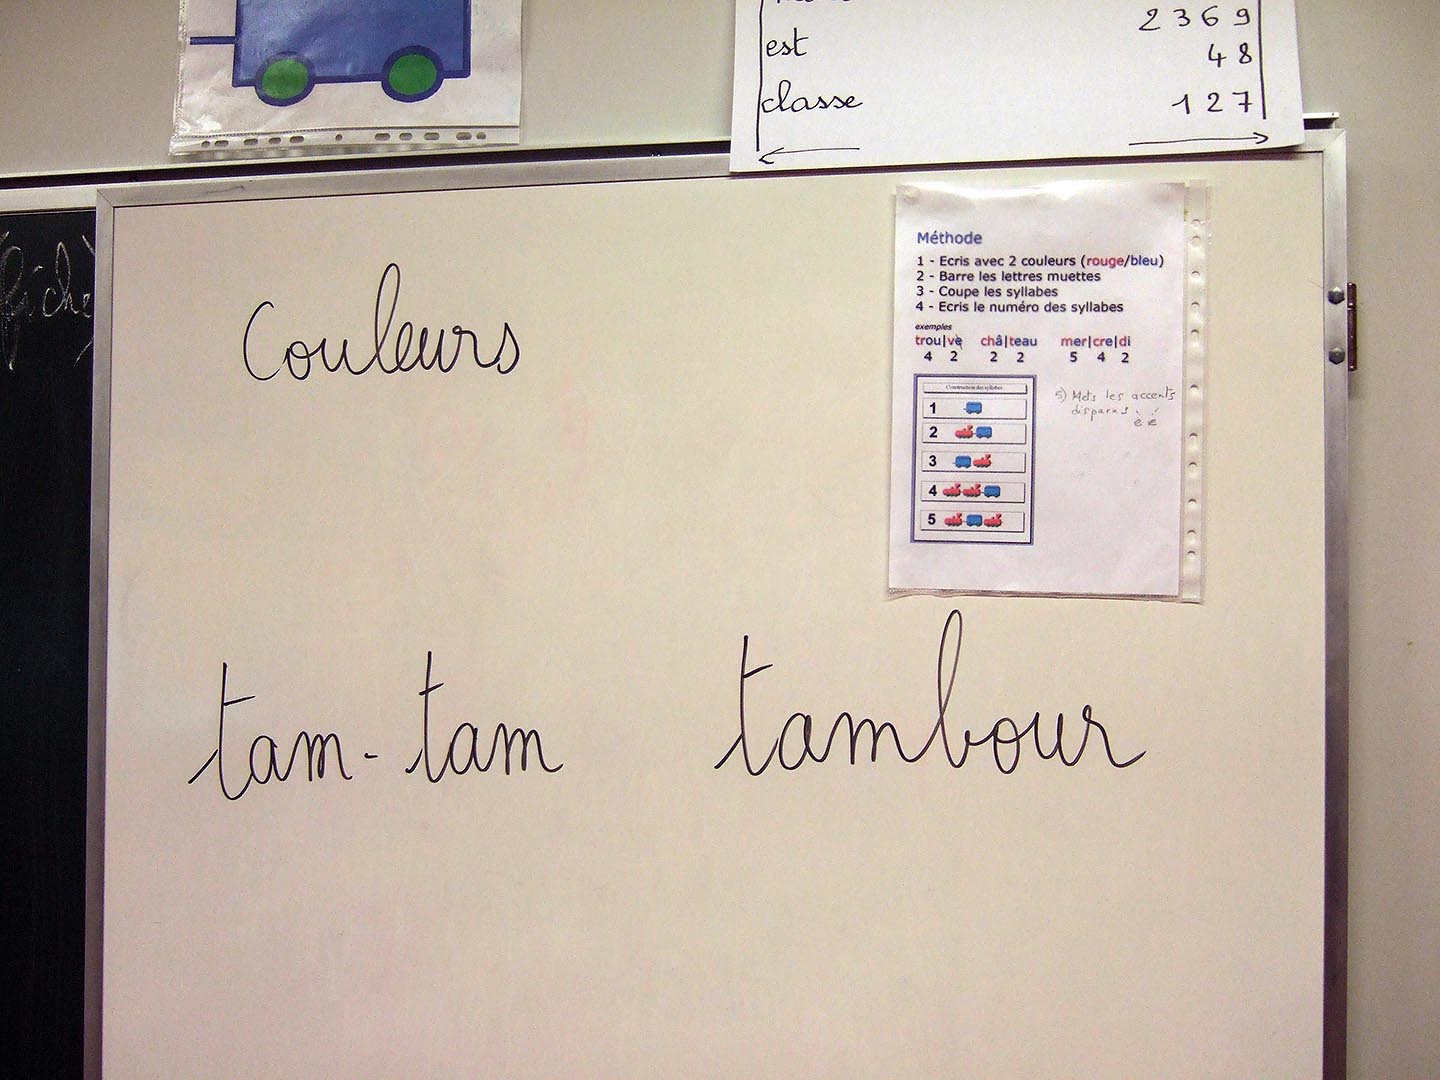 est
2 3 6 9
4 8
classe
1 2 7
Méthode
1 - Ecris avec 2 couleurs (rouge/bleu)
2 - Barre les lettres muettes
3 - Coupe les syllabes
4 - Ecris le numéro des syllabes
exemples
trou|ve châ|teau mer|cre|di
4 2 2 2 5 4 2
Construction des syllabes
1
2
3
4
5
5) Mets les accents
disparus è é
Couleurs
tam-tam tambour